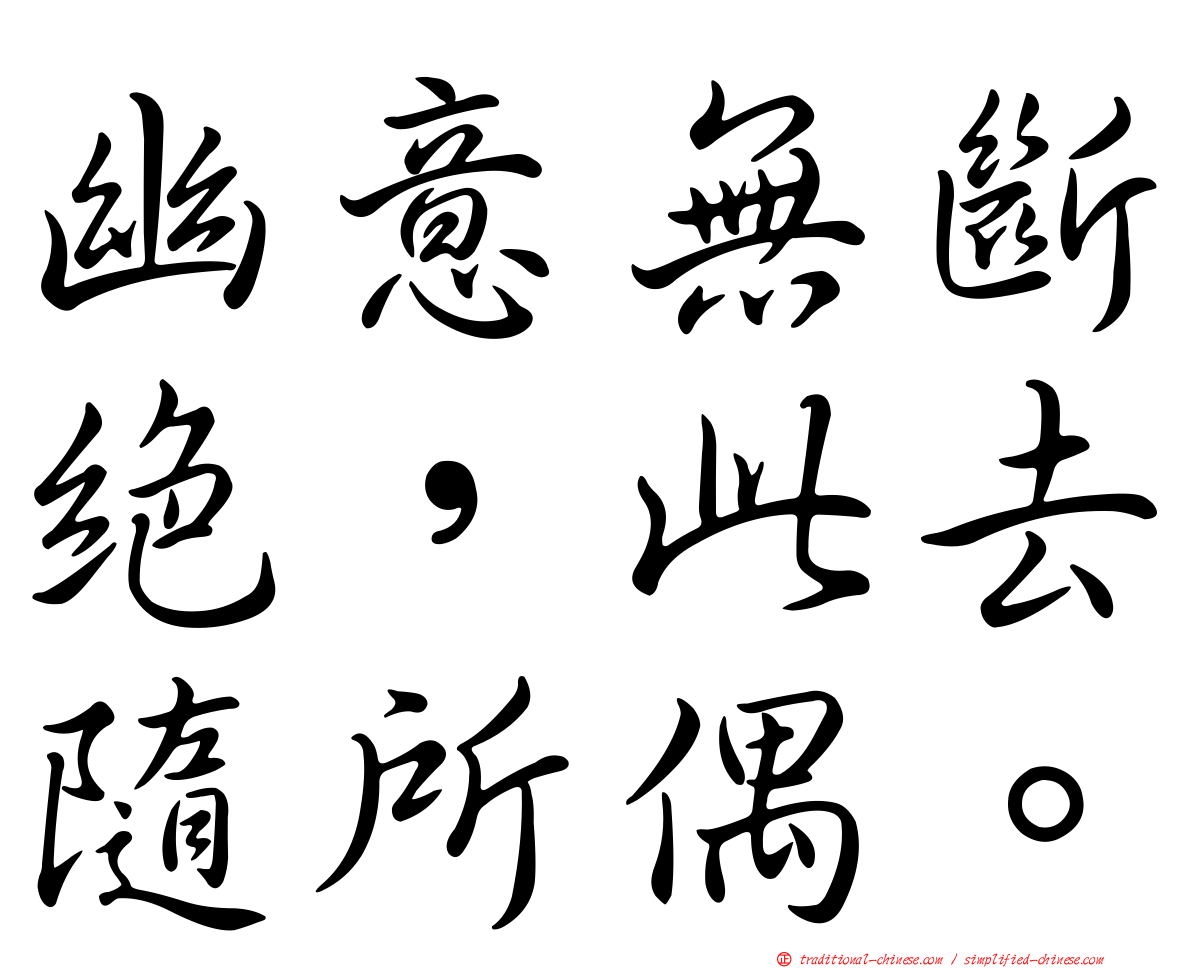 幽意無斷
绝，此去
隨所偶。
正 traditional-chinese.com / simplified-chinese.com